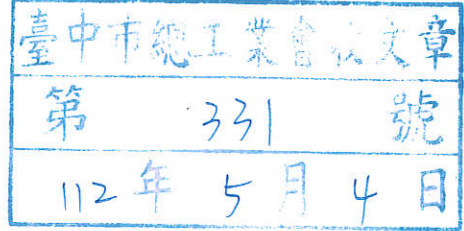 臺中市總工業會收文章
第 331 號
112年 5月 4日